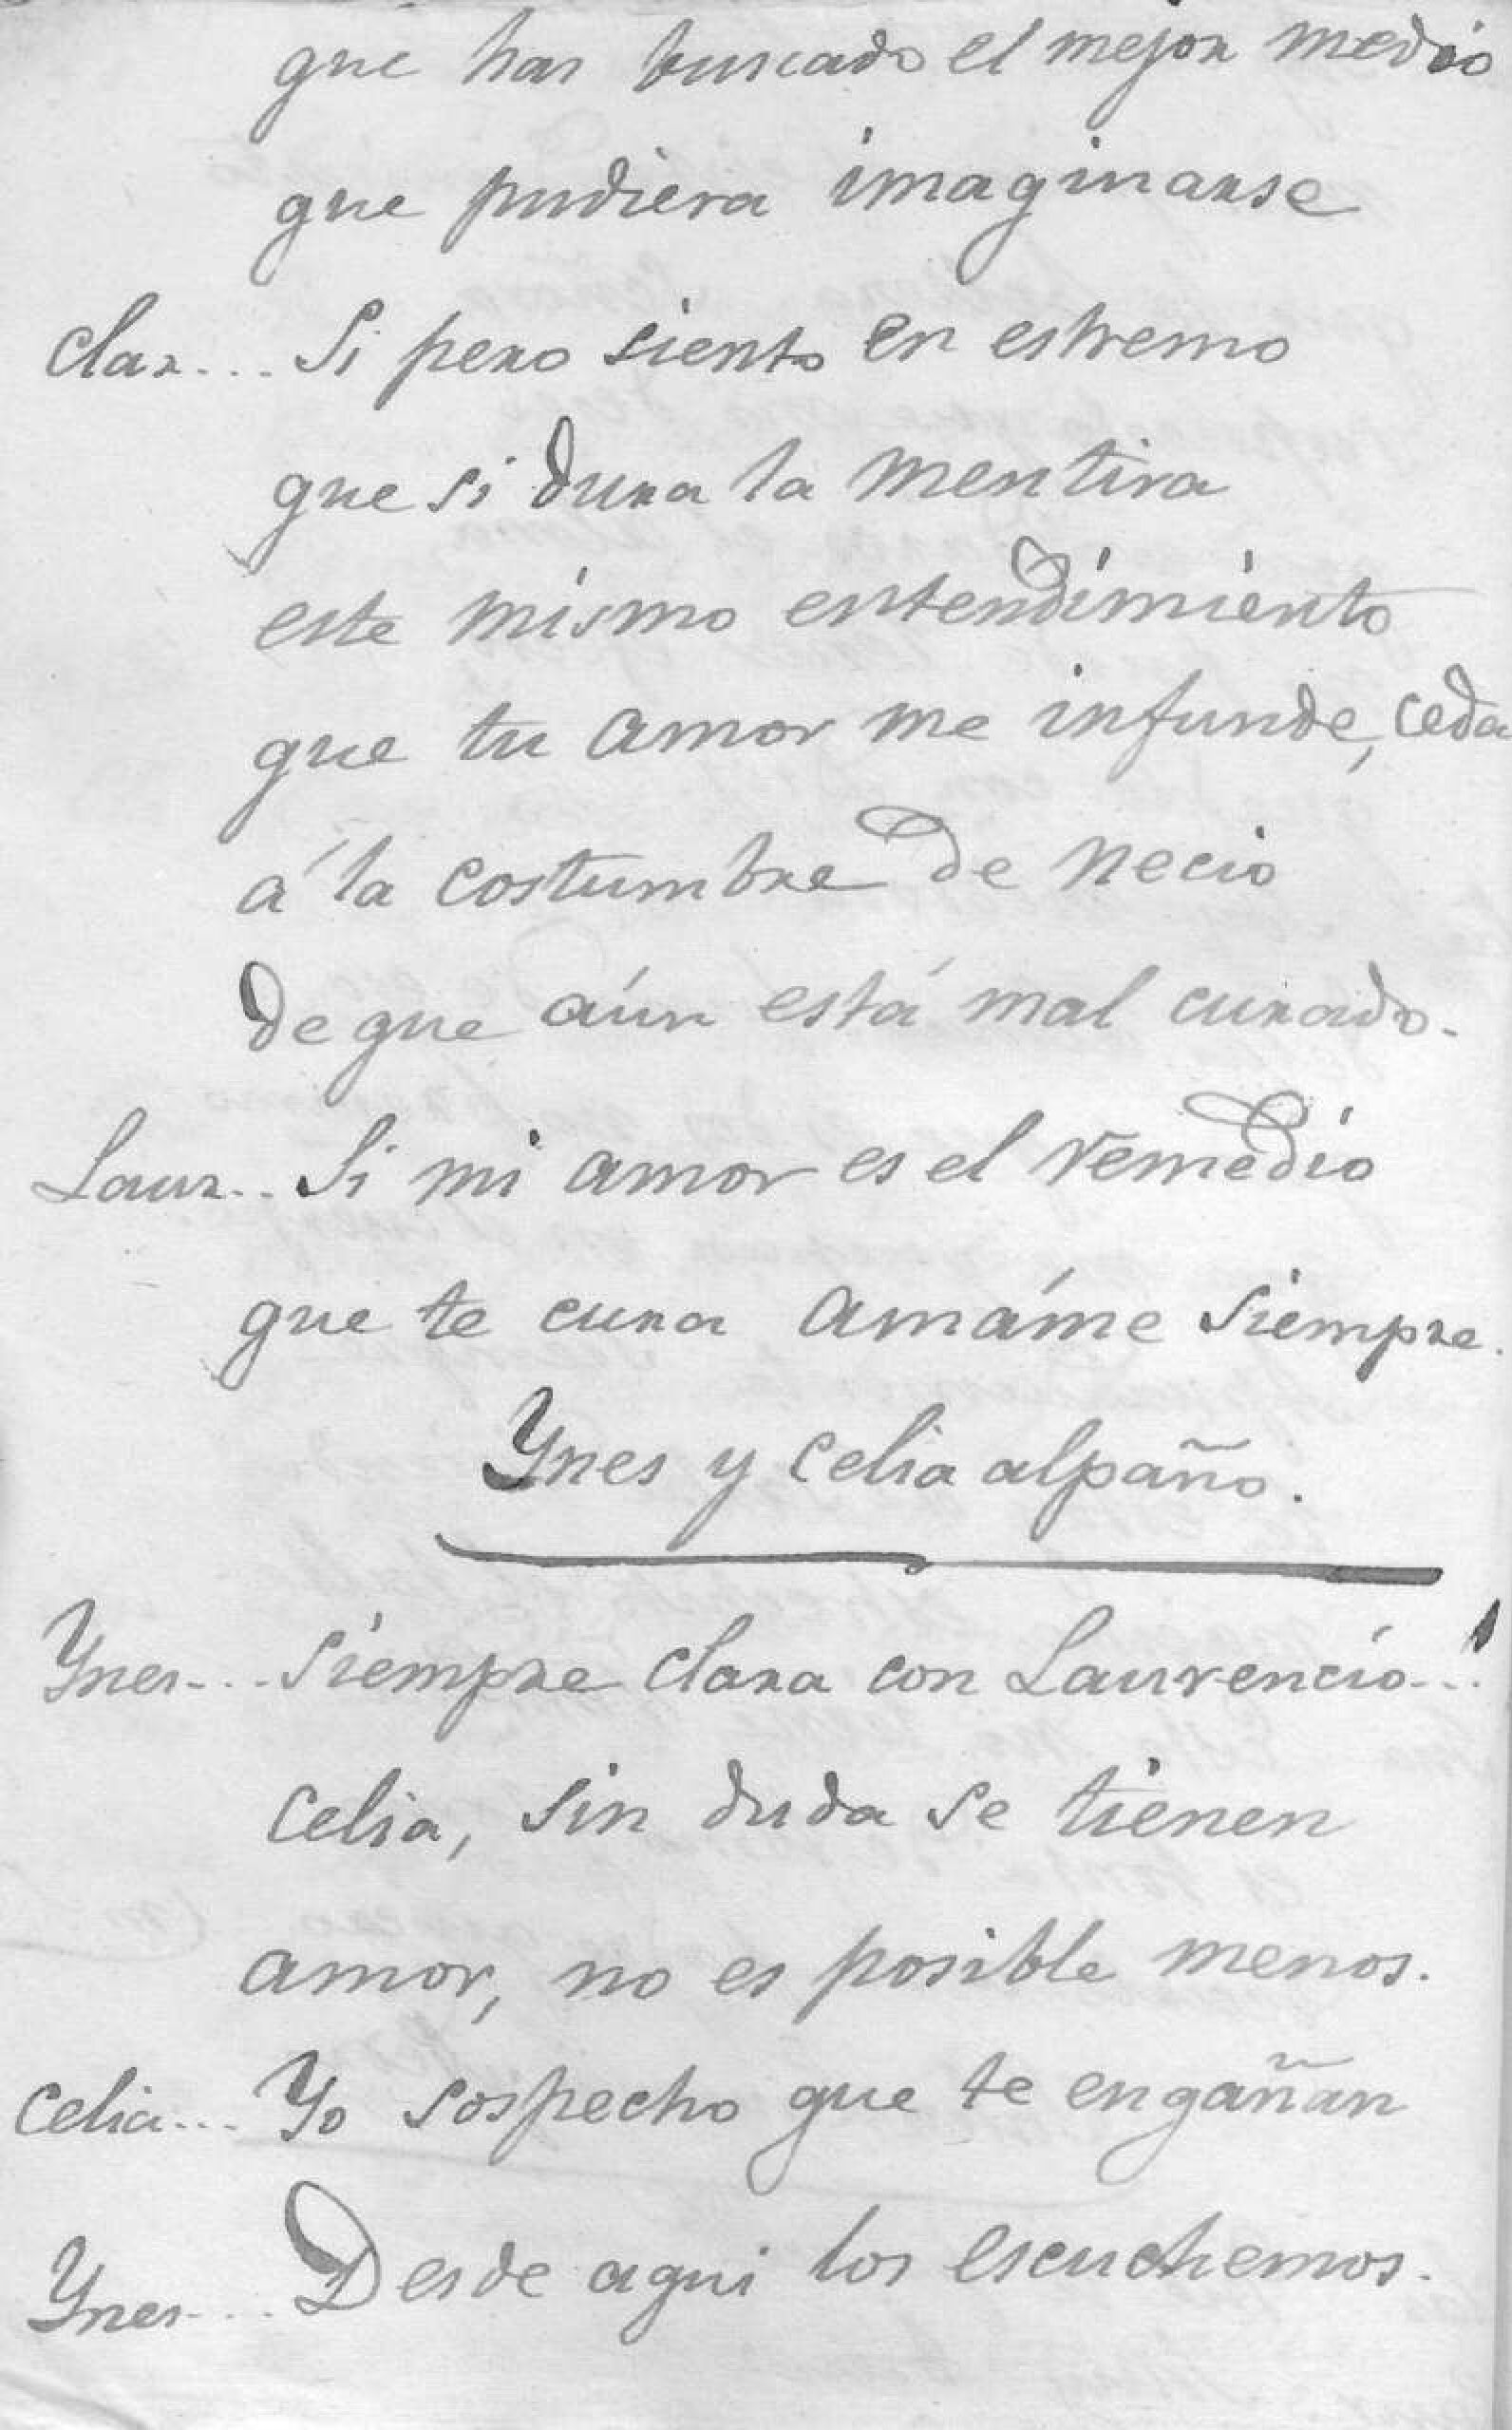 que has buscado el mejor medio
que pudiera imaginarse
Clar... Si pero siento en estremo
que si dura la mentira
este mismo entendimiento
que tu amor me infunde, ceda
á la costumbre de necio
de que aún está mal curado.
Laur.. Si mi amor es el remedio
que te cura amáme siempre.
Ynes y Celia al paño.
Ynes... Siempre Clara con Laurencio...!
Celia, sin duda se tienen
amor, no es posible menos.
Celia... Yo sospecho que te engañan
Ynes.... Desde aqui los escuchemos.